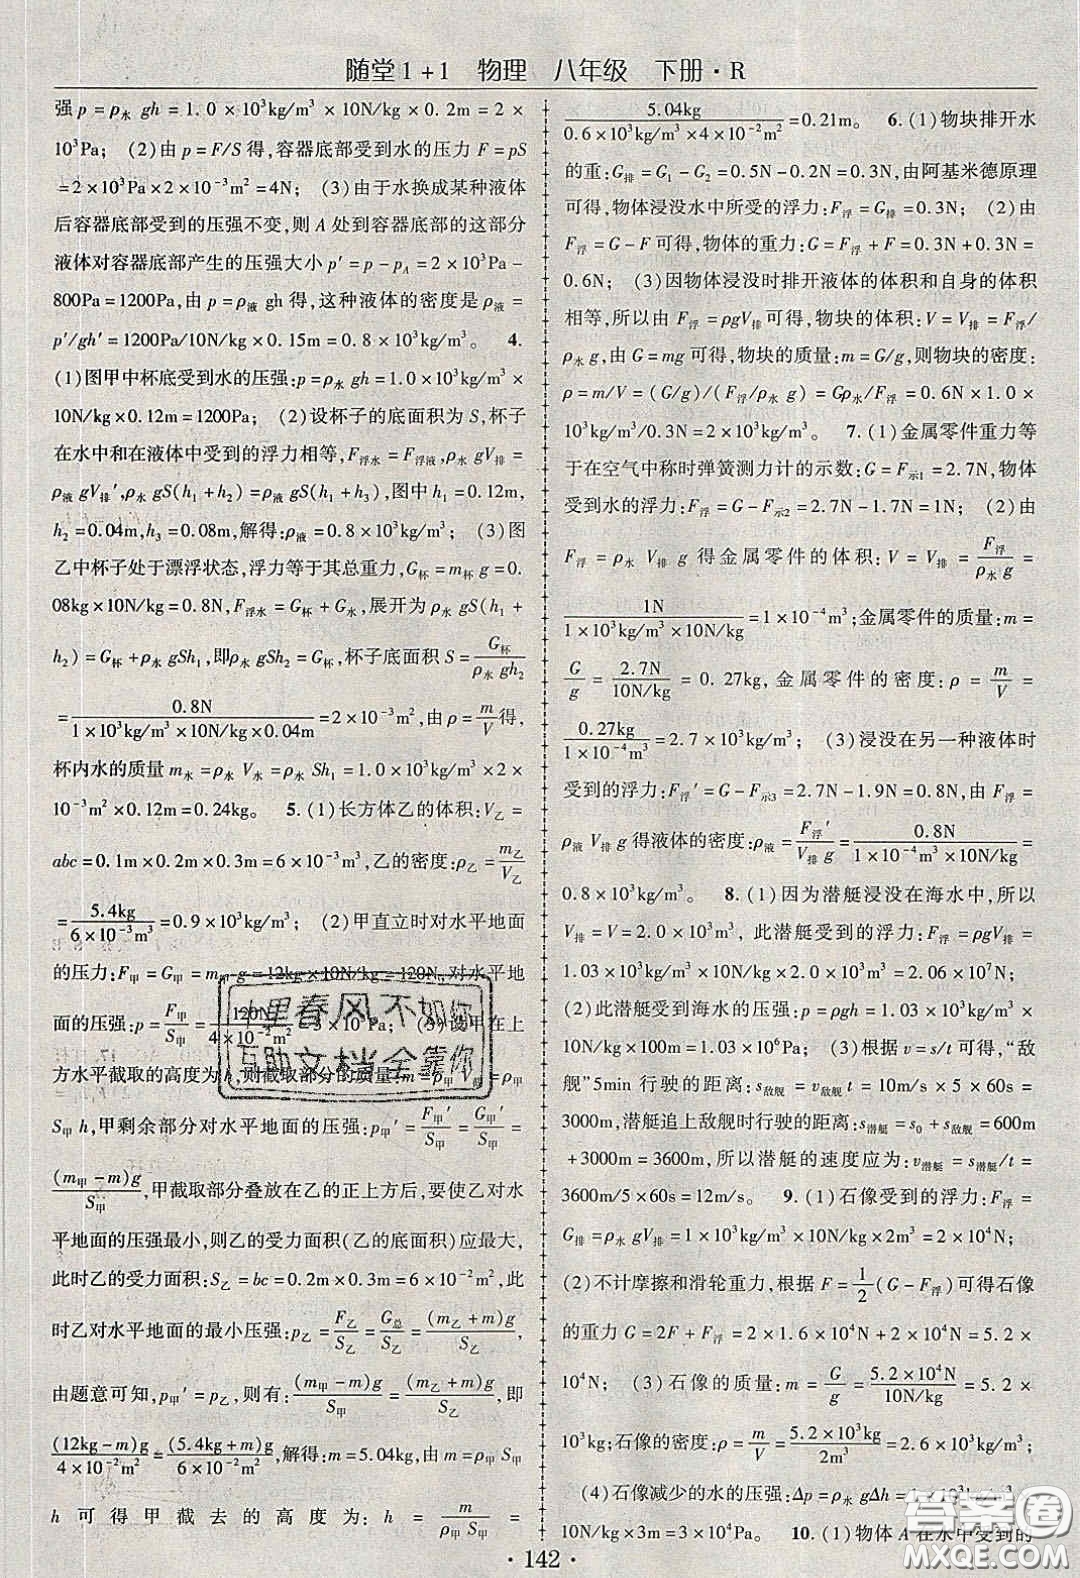 随堂1+1 物理 八年级 下册·R
强p=ρ水 gh=1.0×10³kg/m³×10N/kg×0.2m=2×
10³Pa; (2)由p=F/S得,容器底部受到水的压力F=pS
=2×10³Pa×2×10⁻³m²=4N; (3)由于水换成某种液体
后容器底部受到的压强不变,则A处到容器底部的这部分
液体对容器底部产生的压强大小p′=p-pA=2×10³Pa-
800Pa=1200Pa,由p=ρ液 gh得,这种液体的密度是ρ液=
p′/gh′=1200Pa/10N/kg×0.15m=0.8×10³kg/m³。 4.
(1)图甲中杯底受到水的压强:p=ρ水 gh=1.0×10³kg/m³×
10N/kg×0.12m=1200Pa; (2)设杯子的底面积为S,杯子
在水中和在液体中受到的浮力相等,F浮水=F浮液,ρ水 gV排=
ρ液 gV排′,ρ水 gS(h₁+h₂)=ρ液 gS(h₁+h₃),图中h₁=0.12m,
h₂=0.04m,h₃=0.08m,解得:ρ液=0.8×10³kg/m³; (3)图
乙中杯子处于漂浮状态,浮力等于其总重力,G杯=m杯 g=0.
08kg×10N/kg=0.8N,F浮水=G杯+G水,展开为ρ水 gS(h₁+
h₂)=G杯+ρ水 gSh₁,即ρ水 gSh₂=G杯,杯子底面积S=G杯/ρ水 gh₂
=0.8N/1×10³kg/m³×10N/kg×0.04m=2×10⁻³m²,由ρ=m/V得,
杯内水的质量m水=ρ水 V水=ρ水 Sh₁=1.0×10³kg/m³×2×
10⁻³m²×0.12m=0.24kg。 5.(1)长方体乙的体积:V乙=
abc=0.1m×0.2m×0.3m=6×10⁻³m³,乙的密度:ρ乙=m乙/V乙
=5.4kg/6×10⁻³m³=0.9×10³kg/m³; (2)甲直立时对水平地面
的压力:F甲=G甲=m甲 g=12kg×10N/kg=120N,对水平地
面的压强:p=F甲/S甲=120N/4×10⁻²m²=3×10³Pa; (3)设甲在上
方水平截取的高度为h,则截取部分的质量:m=ρ甲
S甲 h,甲剩余部分对水平地面的压强:p甲′=F甲′/S甲=G甲′/S甲=
(m甲-m)g/S甲,甲截取部分叠放在乙的正上方后,要使乙对水
平地面的压强最小,则乙的受力面积(乙的底面积)应最大,
此时乙的受力面积:S乙=bc=0.2m×0.3m=6×10⁻²m²,此
时乙对水平地面的最小压强:p乙=F乙/S乙=G总/S乙=(m乙+m)g/S乙,
由题意可知,p甲′=p乙,则有:(m甲-m)g/S甲=(m乙+m)g/S乙,即
(12kg-m)g/4×10⁻²m²=(5.4kg+m)g/6×10⁻²m²,解得:m=5.04kg,由m=ρ甲 S甲
h可得甲截去的高度为:h=m/ρ甲 S甲=
5.04kg/0.6×10³kg/m³×4×10⁻²m²=0.21m。 6.(1)物块排开水
的重:G排=G₁-G₂=0.5N-0.2N=0.3N,由阿基米德原理
可得,物体浸没水中所受的浮力:F浮=G排=0.3N; (2)由
F浮=G-F可得,物体的重力:G=F浮+F=0.3N+0.3N=
0.6N; (3)因物体浸没时排开液体的体积和自身的体积
相等,所以由F浮=ρgV排可得,物块的体积:V=V排=F浮/
ρ水 g,由G=mg可得,物块的质量:m=G/g,则物块的密度:
ρ=m/V=(G/g)/(F浮/ρ水 g)=Gρ水/F浮=0.6N×1.0×
10³kg/m³/0.3N=2×10³kg/m³。 7.(1)金属零件重力等
于在空气中称时弹簧测力计的示数:G=F示1=2.7N,物体
受到水的浮力:F浮=G-F示2=2.7N-1.7N=1N; (2)由
F浮=ρ水 V排 g得金属零件的体积:V=V排=F浮/ρ水 g=
1N/1×10³kg/m³×10N/kg=1×10⁻⁴m³;金属零件的质量:m=
G/g=2.7N/10N/kg=0.27kg,金属零件的密度:ρ=m/V=
0.27kg/1×10⁻⁴m³=2.7×10³kg/m³; (3)浸没在另一种液体时
受到的浮力:F浮′=G-F示3=2.7N-1.9N=0.8N,由F浮=
ρ液 V排 g得液体的密度:ρ液=F浮′/V排 g=0.8N/1×10⁻⁴m³×10N/kg=
0.8×10³kg/m³。 8.(1)因为潜艇浸没在海水中,所以
V排=V=2.0×10³m³,此潜艇受到的浮力:F浮=ρgV排=
1.03×10³kg/m³×10N/kg×2.0×10³m³=2.06×10⁷N;
(2)此潜艇受到海水的压强:p=ρgh=1.03×10³kg/m³×
10N/kg×100m=1.03×10⁶Pa; (3)根据v=s/t可得,“敌
舰”5min行驶的距离:s敌舰=v敌舰 t=10m/s×5×60s=
3000m,潜艇追上敌舰时行驶的距离:s潜艇=s₀+s敌舰=600m
+3000m=3600m,所以潜艇的速度应为:v潜艇=s潜艇/t=
3600m/5×60s=12m/s。 9.(1)石像受到的浮力:F浮=
G排=ρ水 gV排=1×10³kg/m³×10N/kg×2m³=2×10⁴N;
(2)不计摩擦和滑轮重力,根据F=1/2(G-F浮)可得石像
的重力G=2F+F浮=2×1.6×10⁴N+2×10⁴N=5.2×
10⁴N; (3)石像的质量:m=G/g=5.2×10⁴N/10N/kg=5.2×
10³kg;石像的密度:ρ=m/V=5.2×10³kg/2m³=2.6×10³kg/m³;
(4)石像减少的水的压强:Δp=ρ水 gΔh=1×10³kg/m³×
10N/kg×3m=3×10⁴Pa。 10.(1)物体A在水中受到的
·142·
十里春风不如你
互助文档全靠你
答案圈
MXQE.COM